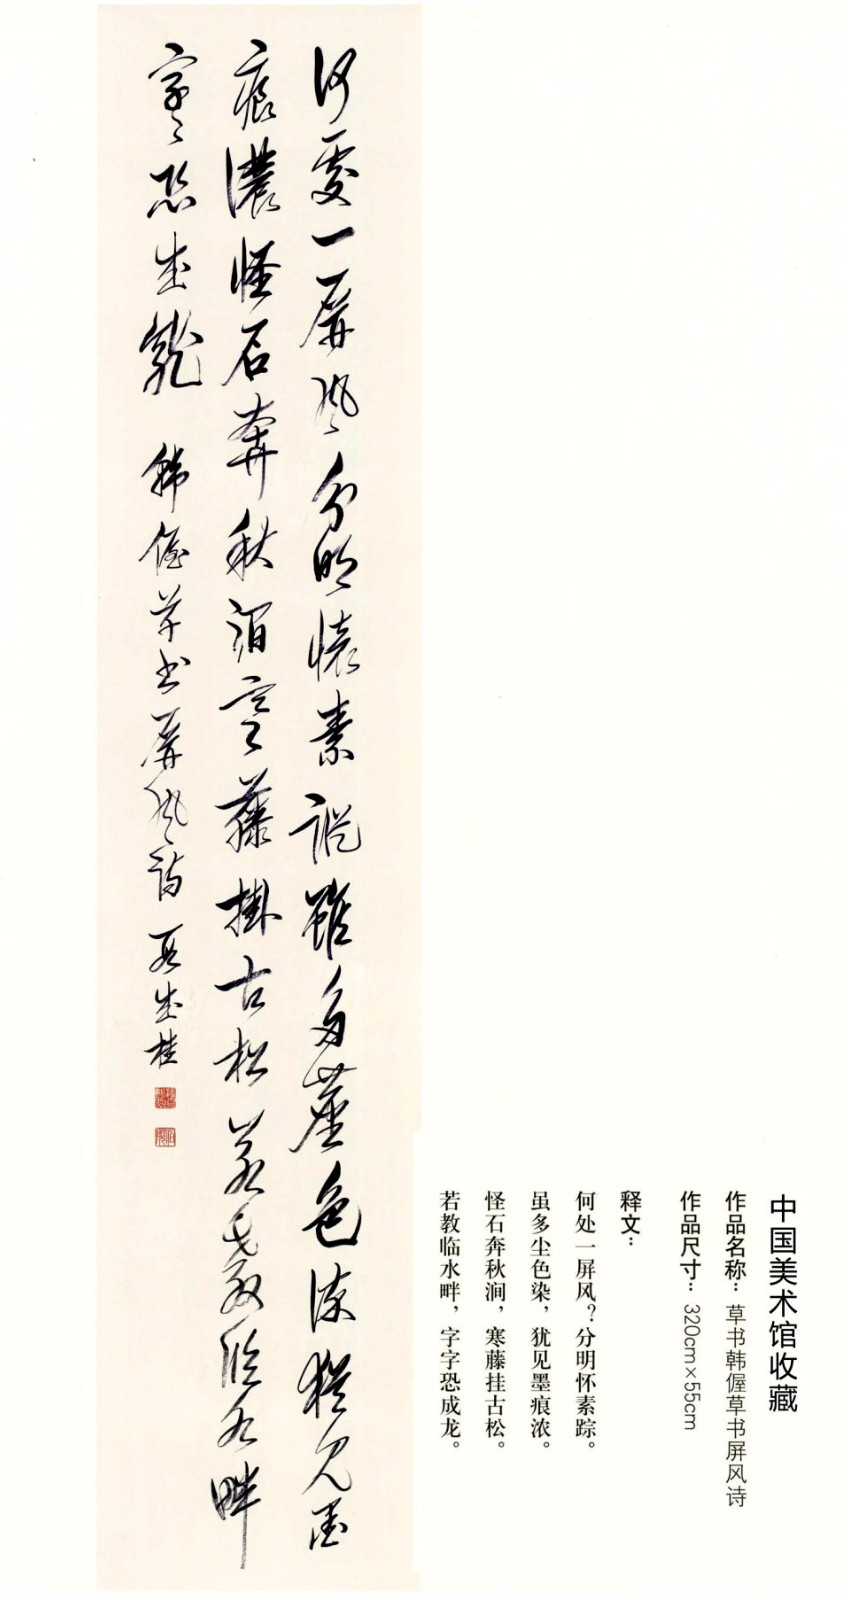 中国美术馆收藏
作品名称：草书韩偓草书屏风诗
作品尺寸：320cm×55cm
释文：
何处一屏风？分明怀素踪。
虽多尘色染，犹见墨痕浓。
怪石奔秋涧，寒藤挂古松。
若教临水畔，字字恐成龙。
何處一屏風分明懷素蹤雖多塵色染猶見墨
痕濃怪石奔秋澗寒藤掛古松若教臨水畔
字〻恐成龍 韓偓草書屏風詩 段成桂